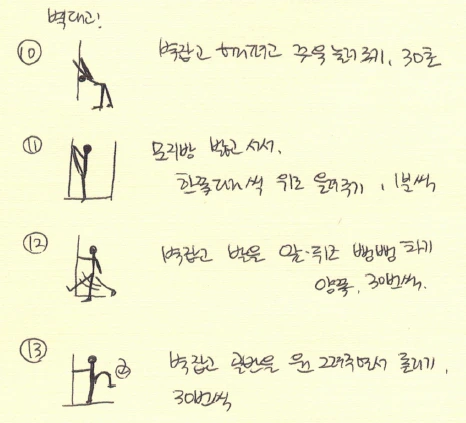 벽대고!
⑩ 벽잡고 꾸욱 눌러주기, 30초
⑪ 모서리방 밟고 서서,
한쪽 위로 올려주기, 1분씩
⑫ 벽잡고 발을 앞·뒤로 뻥뻥 차기
양쪽, 30번씩.
⑬ 벽잡고 골반을 원 그려주면서 돌리기,
30번씩